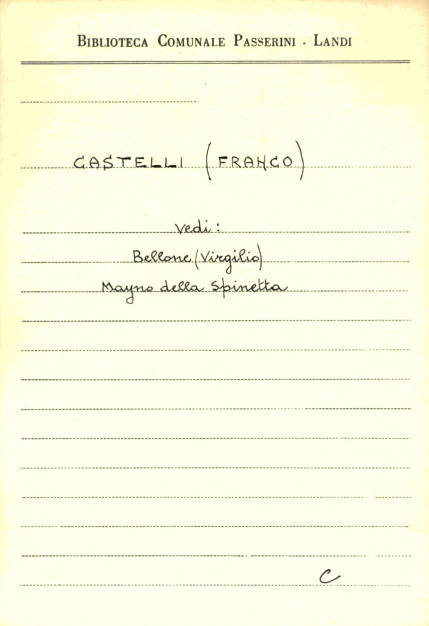 BIBLIOTECA COMUNALE PASSERINI - LANDI
CASTELLI (FRANCO)
Vedi:
Bellone (Virgilio)
Mayno della Spinetta
C